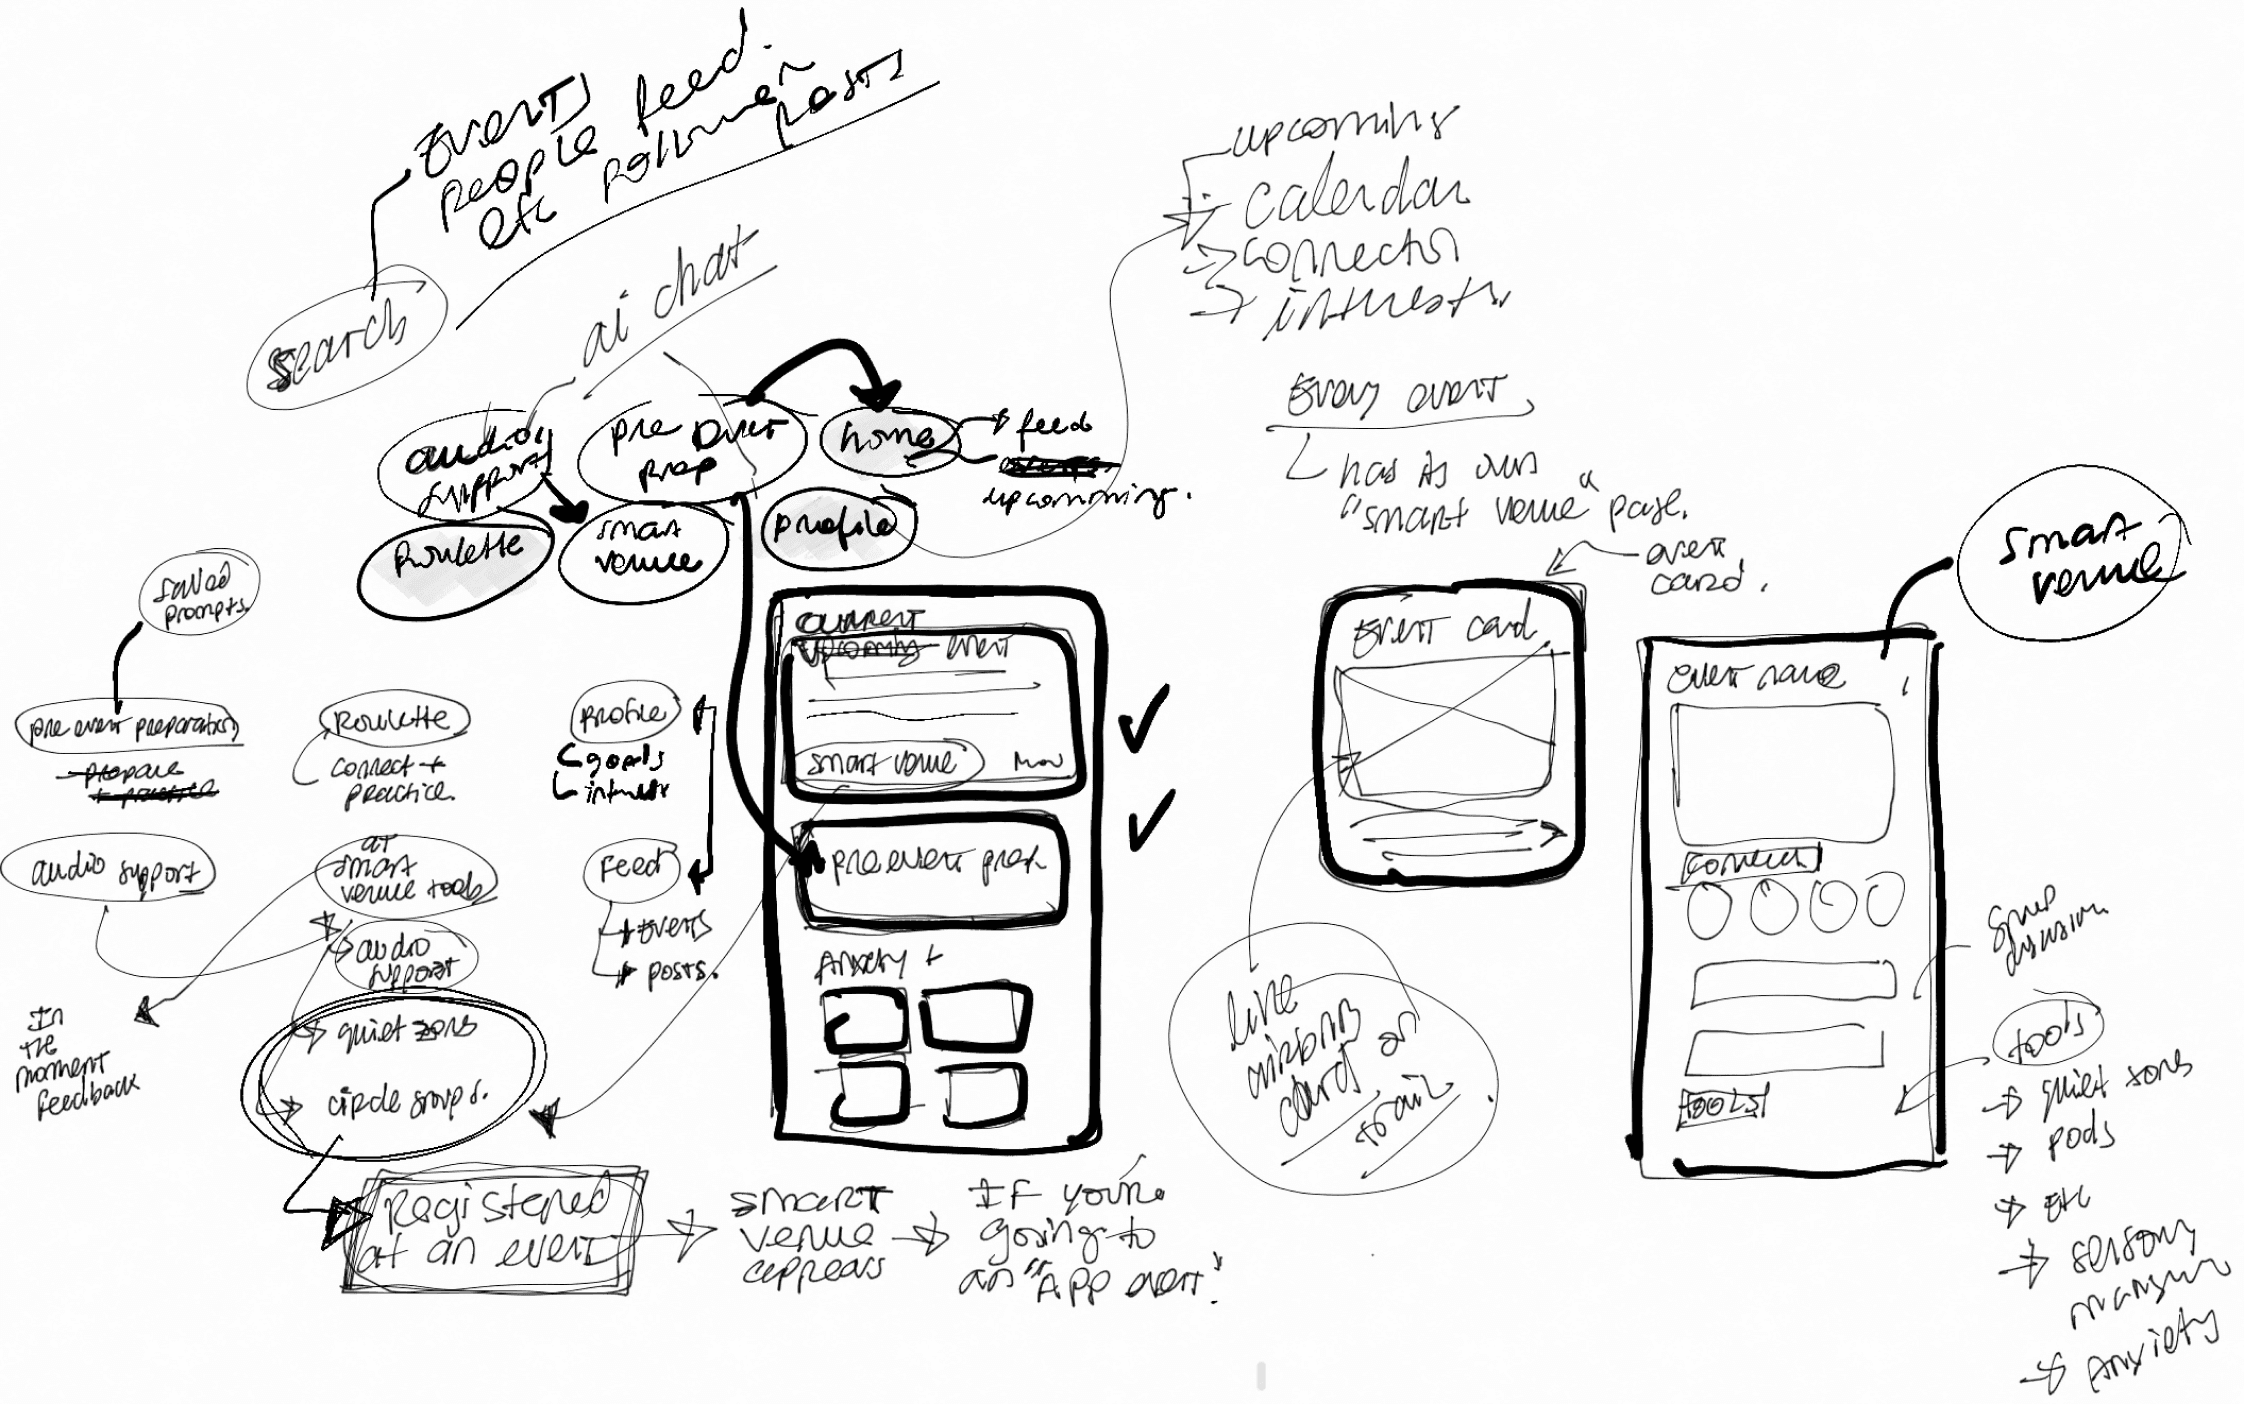 Events
people feed.
etc
posts
search
ai chat
upcoming
calendar
connector
interests
Every event
has its own
"smart venue" page.
event
card.
audio
support
pre event
prep
home
feed
upcomming.
Roulette
smart
venue
profile
smart
venue
saved
prompts.
pre event preparation
prepare
+ practice
Roulette
connect +
practice.
Profile
goals
interests
audio support
at
smart
venue tools
audio
support
Feed
events
posts.
In
the
moment
feedback
quiet zones
circle groups.
current
upcoming event
smart venue
Map
pre event prep
Anxiety +
Event card
live
cards on
event name
connect
tools
group
discussion
tools
quiet zones
pods
etc
sensory
anxiety
Registered
at an event
smart
venue
appears
IF you're
going to
an "App event".